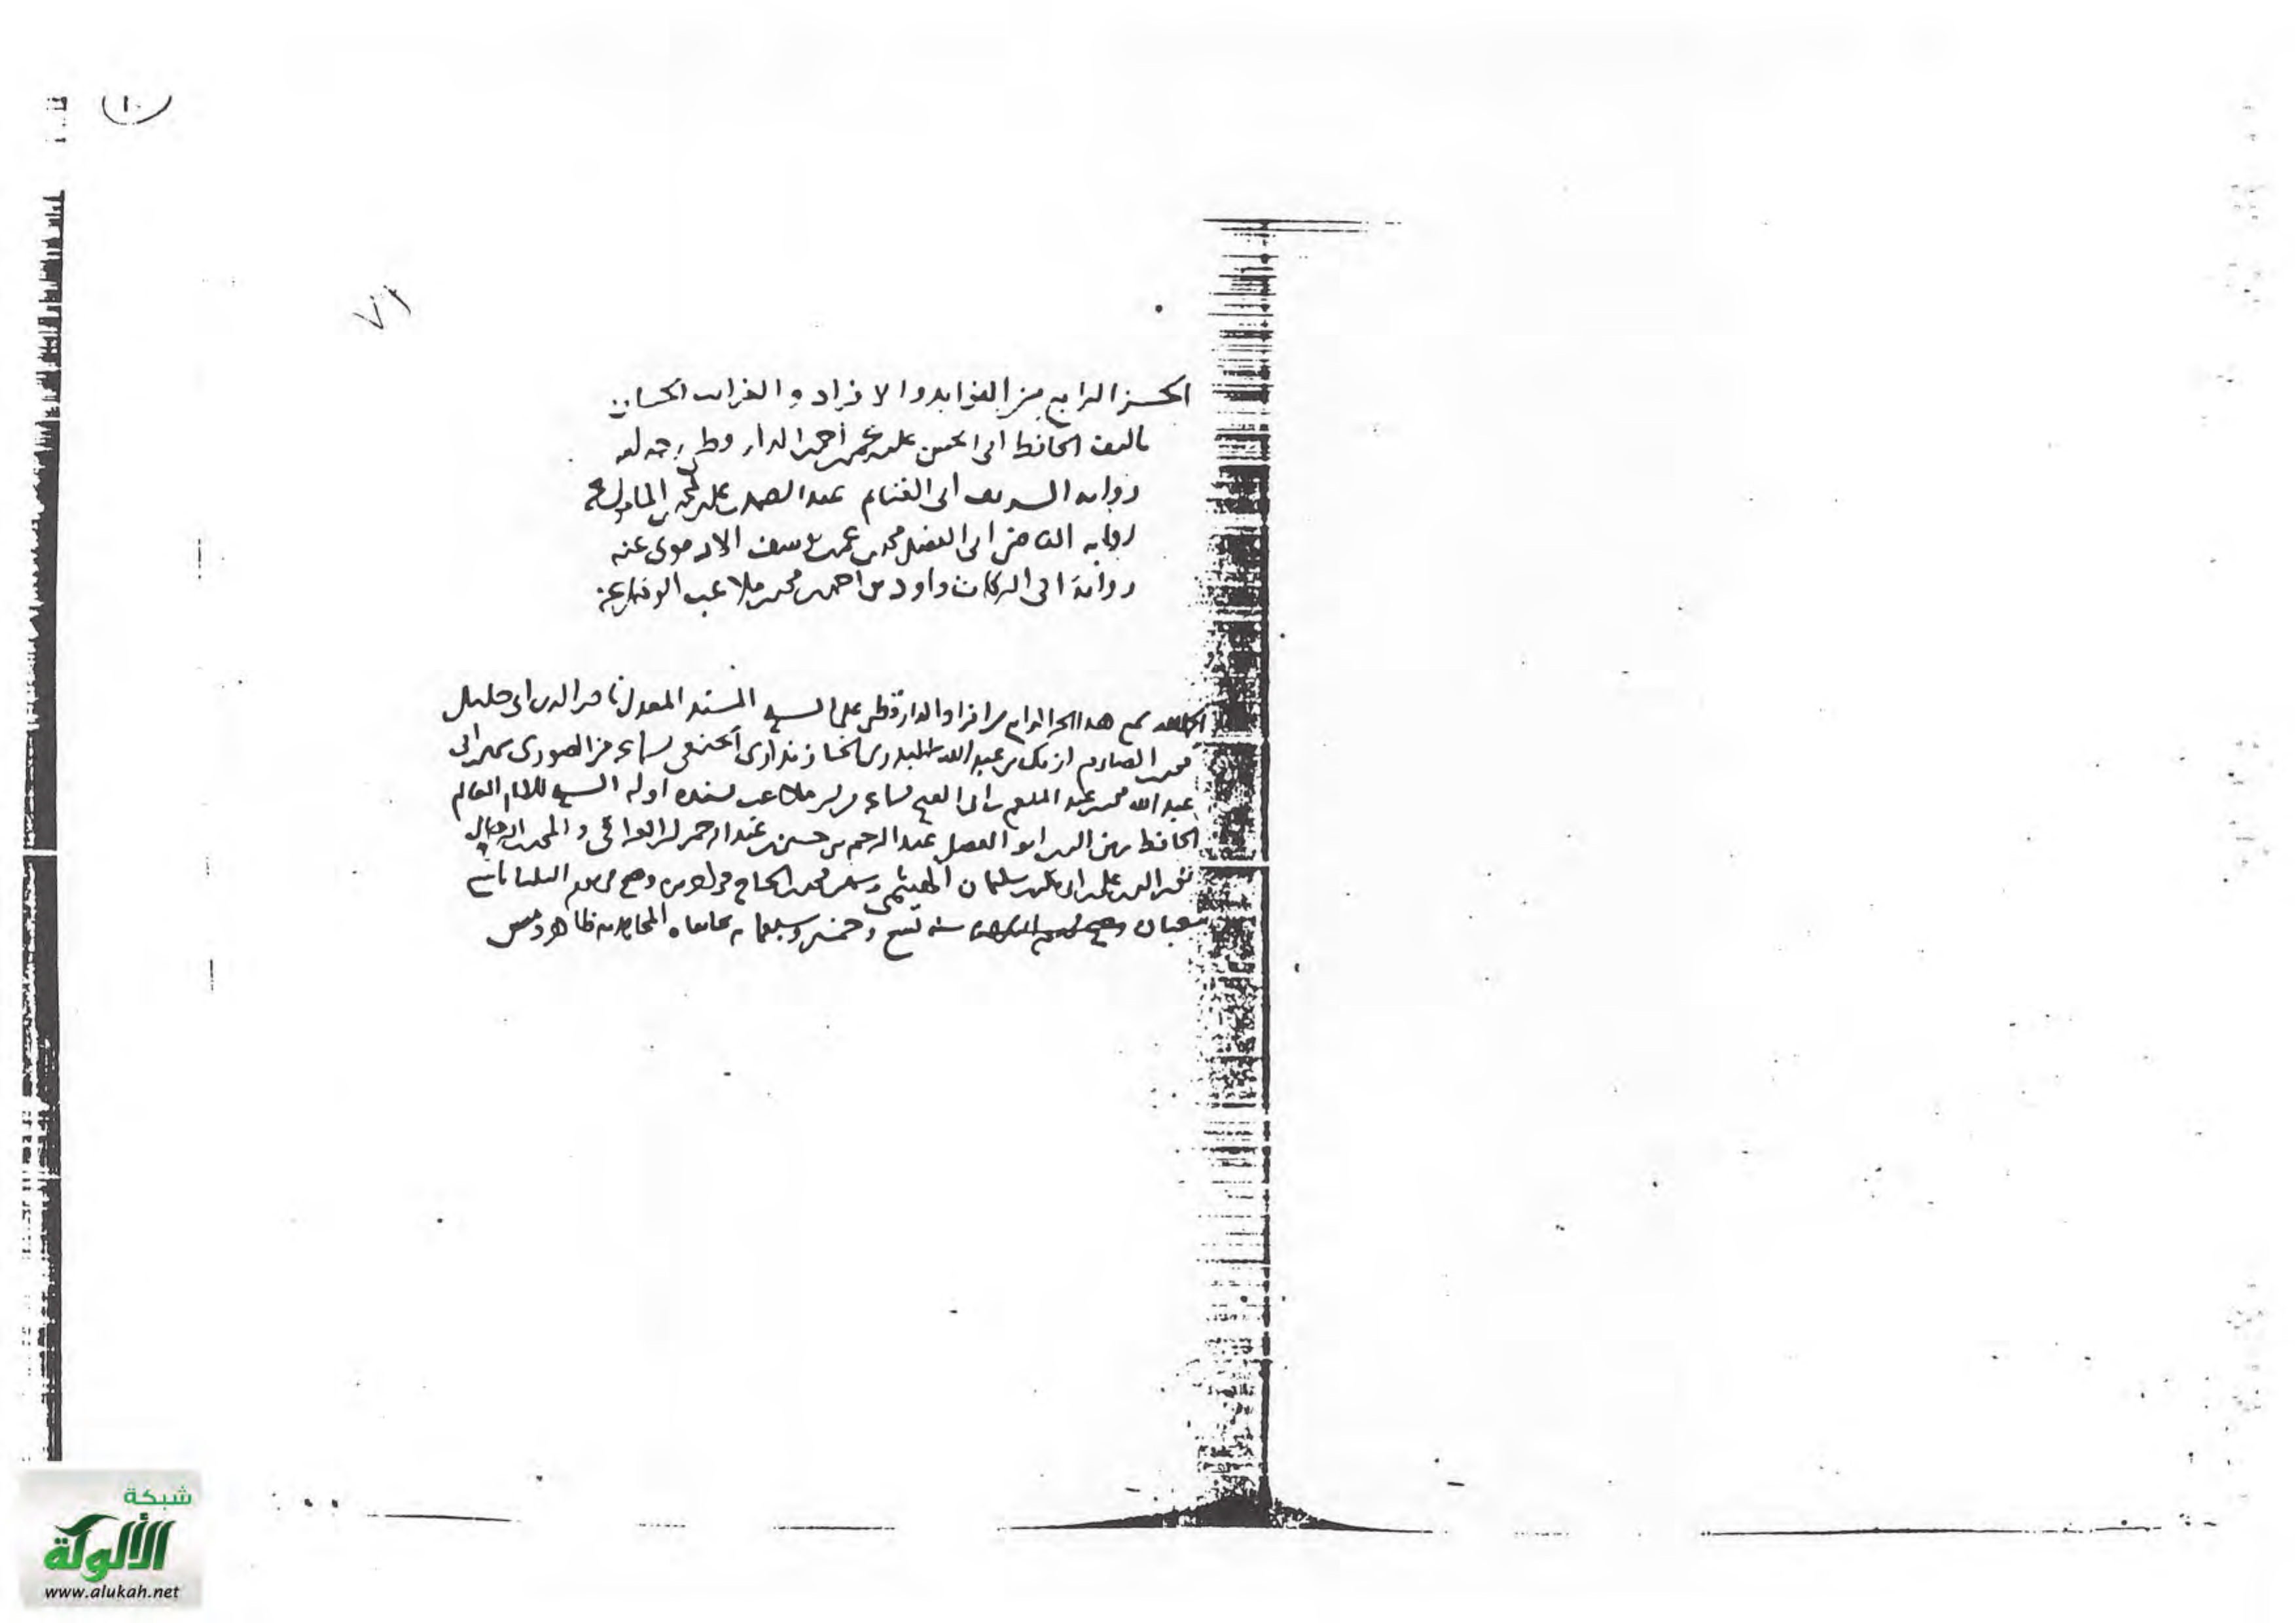 ١٠
٧١
الجزء الرابع من الفوايد والافراد والغرايب الحسان
تاليف الحافظ ابى الحسن على بن عمر بن أحمد الدارقطنى رحمه الله
رواية الشريف ابى الغنايم عبد الصمد بن على بن محمد بن المامون عنه
رواية القاضى ابى الفضل محمد بن عمر بن يوسف الارموى عنه
رواية ابى البركات داود بن احمد بن محمد بن ملاعب الوكيل عنه
الحمد لله سمع هذا الجزء الرابع من افراد الدارقطنى على الشيخ المسند المعدل ناصر الدين ابى
محمد بن الصارم ازبك بن عبد الله البدرى الخازندارى الحنفى بسماعه من الصورى
عبد الله محمد بن عبد المنعم بن ابى الفتح بسماعه من ابن ملاعب بسنده اوله الشيخ الامام العالم
الحافظ زين الدين ابو الفضل عبد الرحيم بن حسين بن عبد الرحمن العراقى والمحدث
نور الدين على بن ابى بكر بن سليمان الهيثمى وصح فى يوم الثلثا
شعبان سنة تسع وخمسين وسبعمائة ظاهر دمشق
شبكة
الألوكة
www.alukah.net